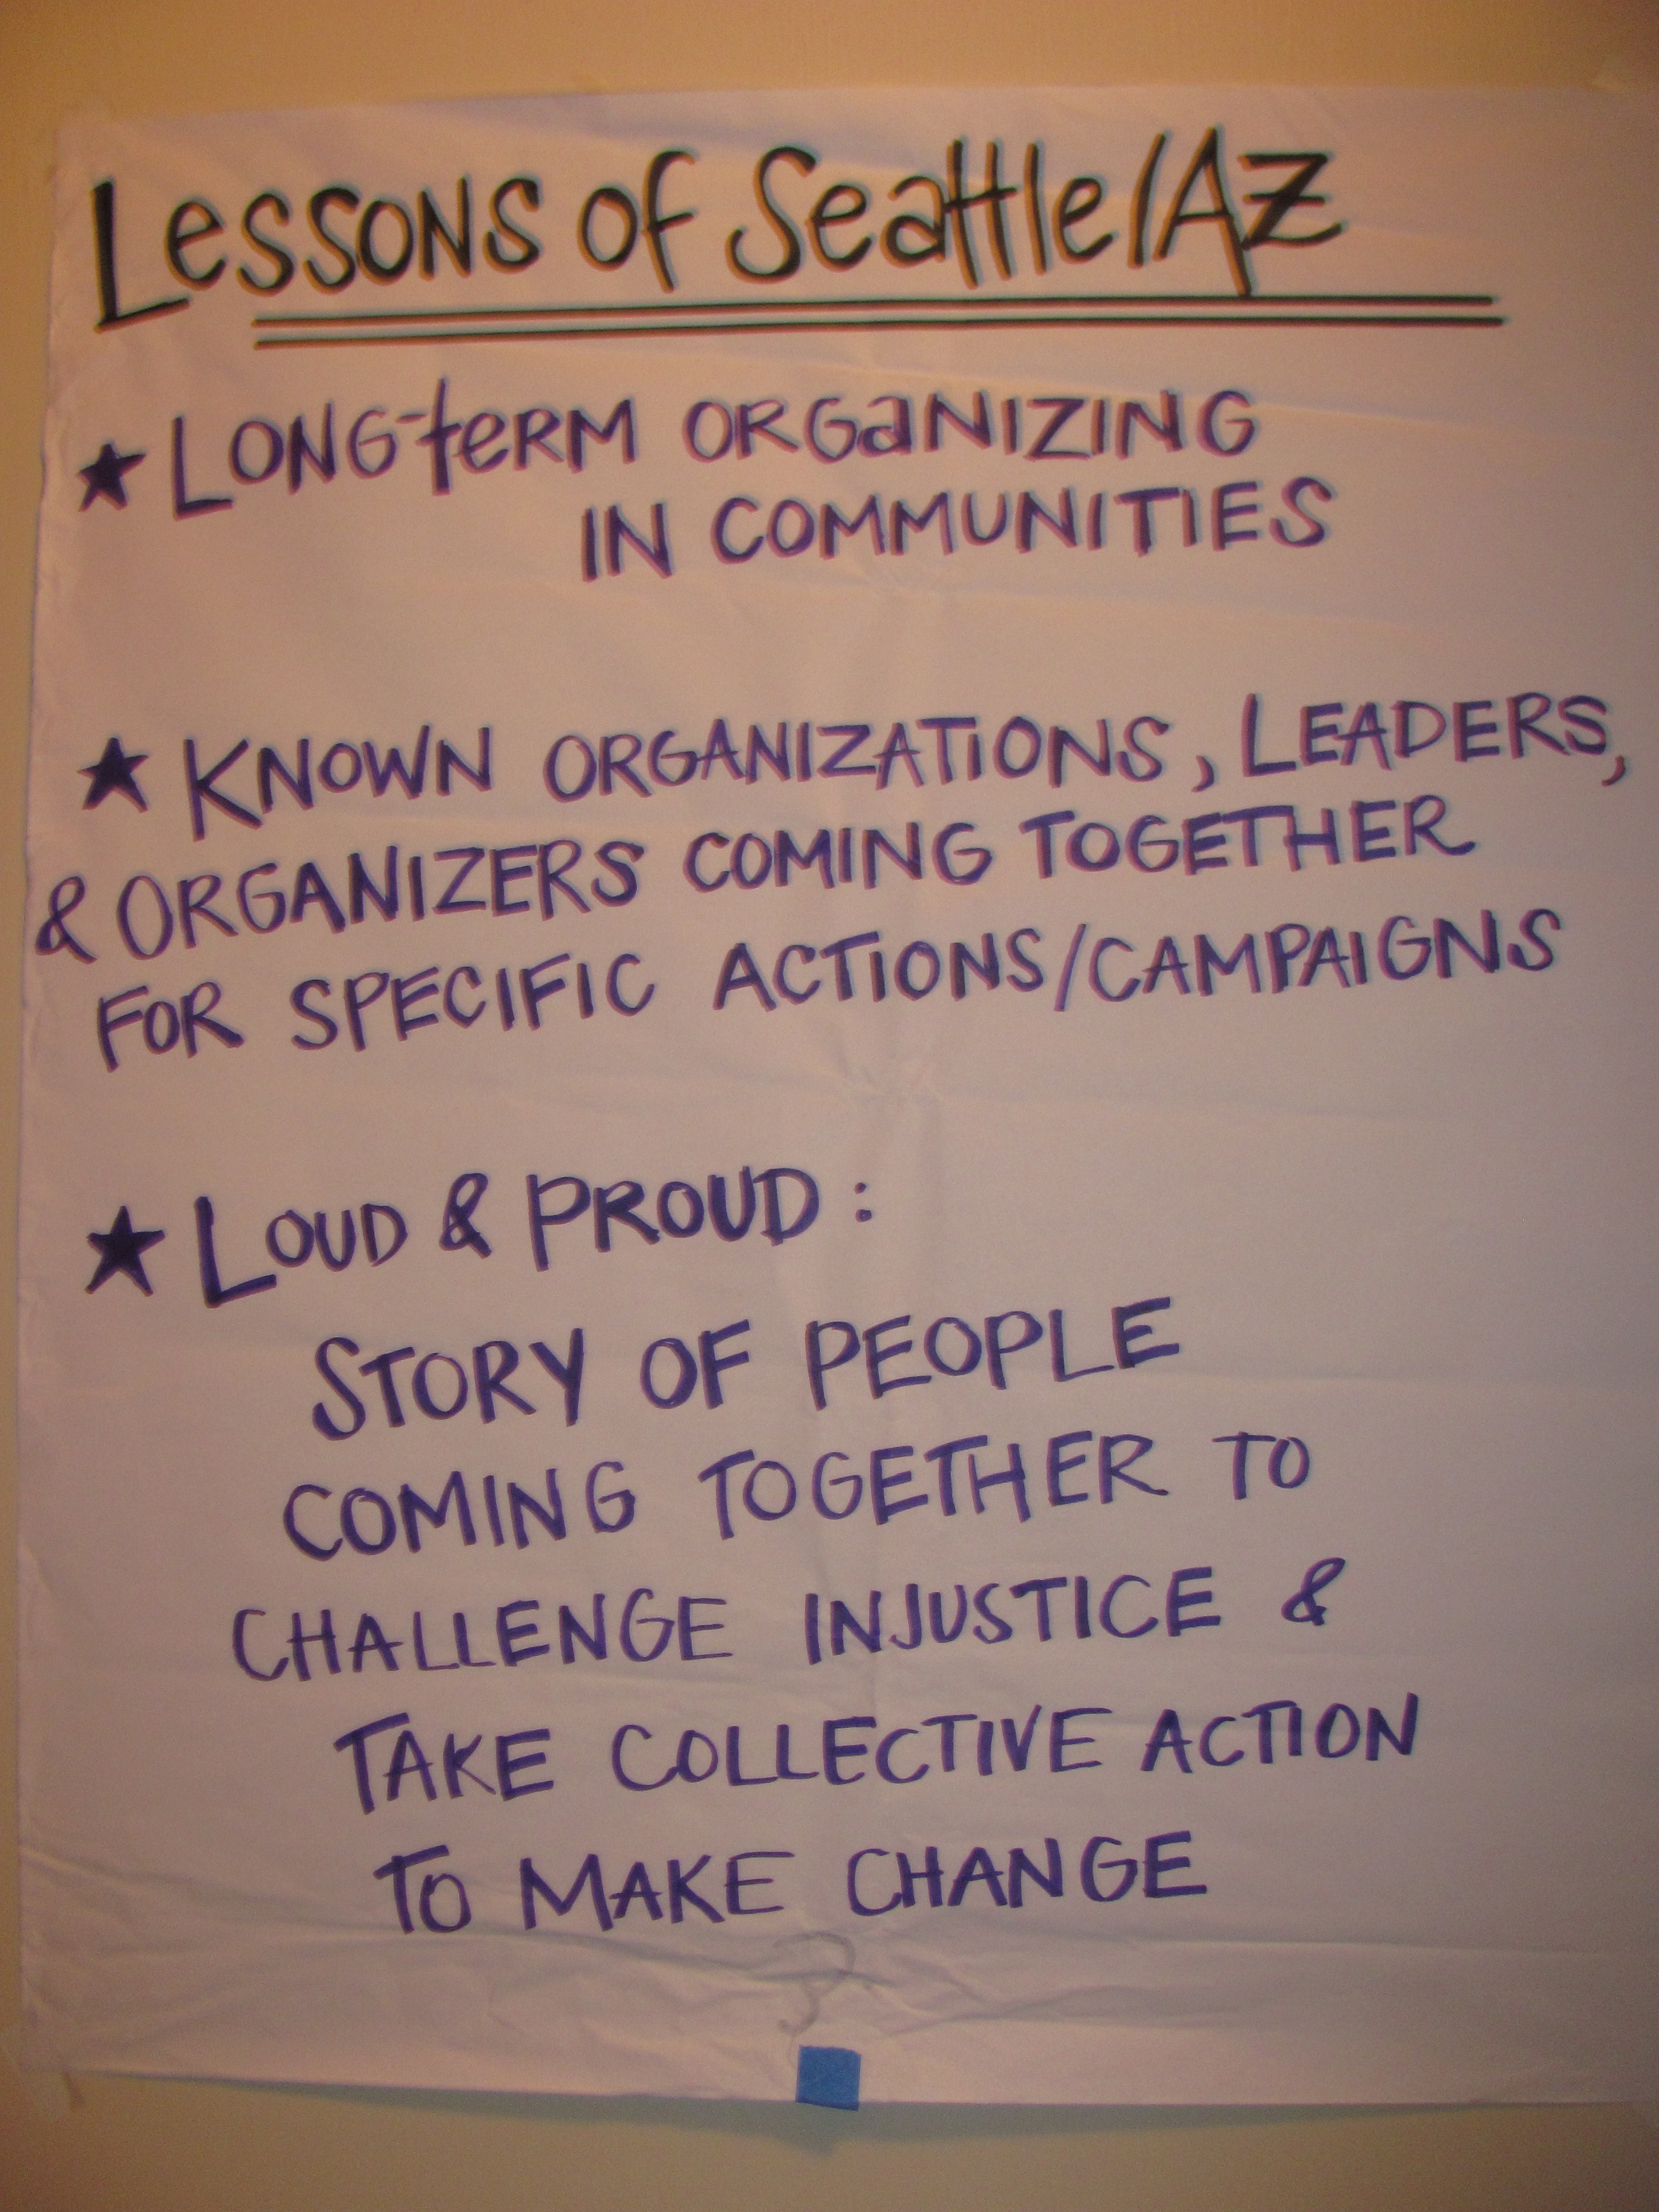 Lessons of Seattle/AZ
★ Long-term organizing
in communities
★ KNOWN ORGANIZATIONS, LEADERS,
& ORGANIZERS COMING TOGETHER
FOR SPECIFIC ACTIONS/CAMPAIGNS
★ LOUD & PROUD:
STORY OF PEOPLE
COMING TOGETHER TO
CHALLENGE INJUSTICE &
TAKE COLLECTIVE ACTION
TO MAKE CHANGE